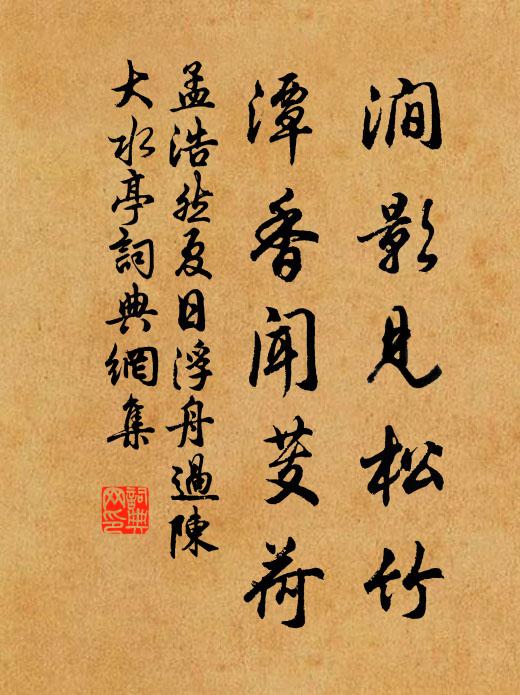 澗影見松竹
潭香聞芰荷
孟浩然夏日浮舟過陳
大水亭詞典網集
詞典
网印